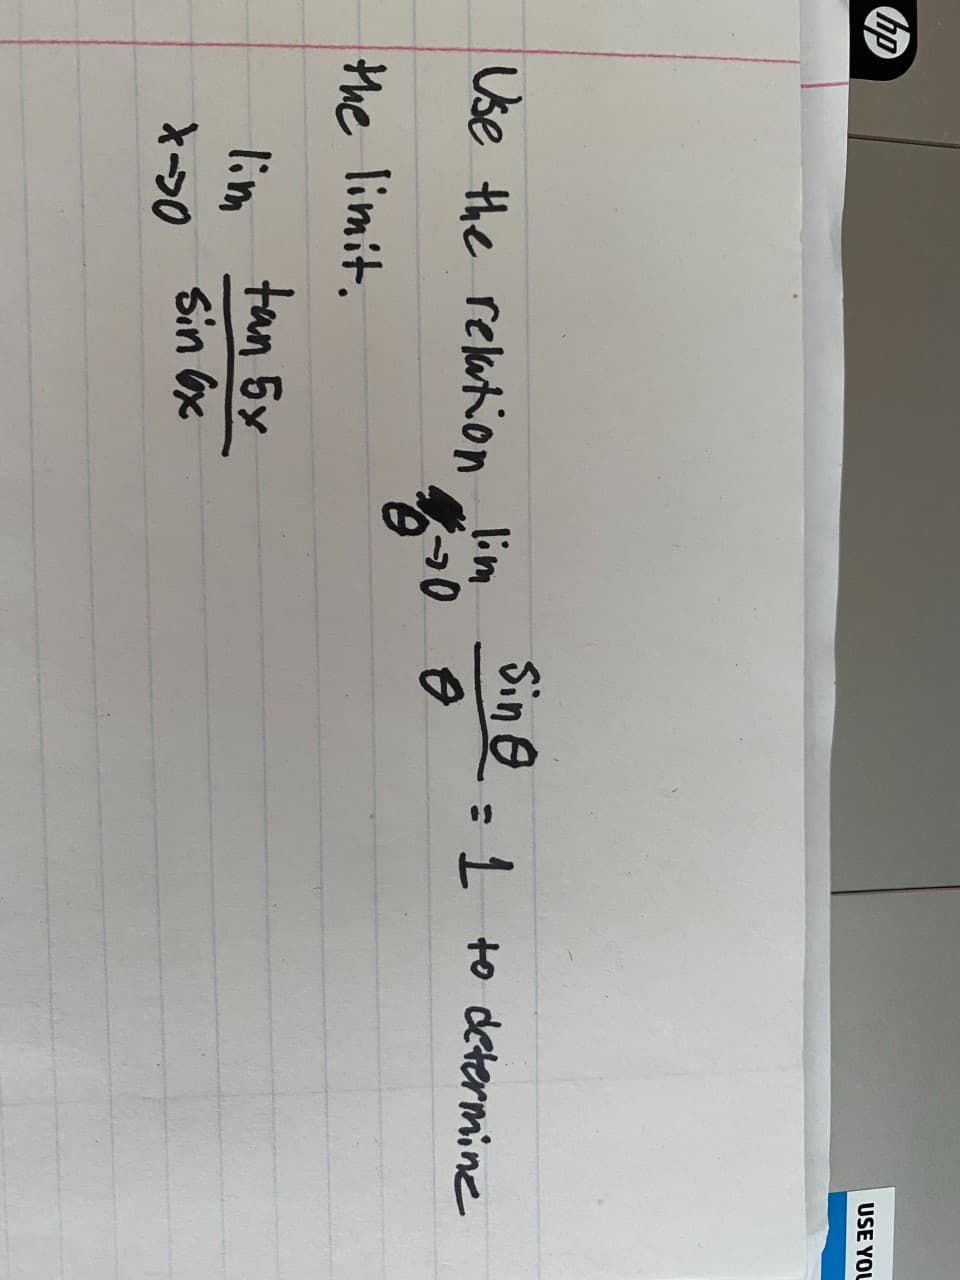 hp
USE YOU
Use the relation lim θ→0 sin θ / θ = 1 to determine
the limit.
lim x→0 tan 5x / sin 6x